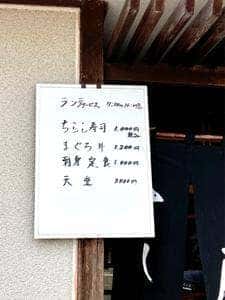 ランチサービス
ちらし寿司 1,000円
まぐろ丼 1,200円
刺身定食 1,000円
天重